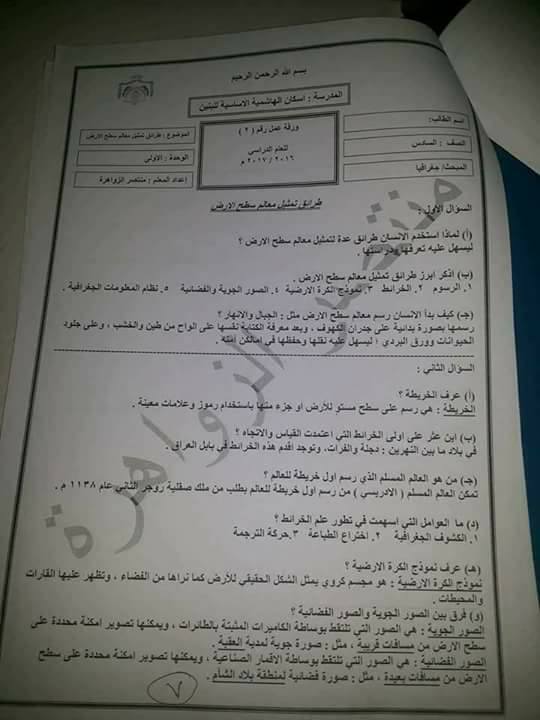 بسم الله الرحمن الرحيم
المدرسة : اسكان الهاشمية الاساسية للبنين
اسم الطالب:
الصف : السادس
المبحث: جغرافيا
ورقة عمل رقم ( ٢ )
للعام الدراسي
٢٠١٦ / ٢٠١٧ م
الموضوع : طرائق تمثيل معالم سطح الارض
الوحدة : الاولى
إعداد المعلم : منتصر الزواهرة
طرائق تمثيل معالم سطح الارض
السؤال الاول :
(أ) لماذا استخدم الانسان طرائق عدة لتمثيل معالم سطح الارض ؟
ليسهل عليه تعرفها ودراستها .
(ب) اذكر ابرز طرائق تمثيل معالم سطح الارض .
١. الرسوم ٢. الخرائط ٣. نموذج الكرة الارضية ٤. الصور الجوية والفضائية ٥. نظام المعلومات الجغرافية .
(جـ) كيف بدأ الانسان رسم معالم سطح الارض مثل : الجبال والانهار ؟
رسمها بصورة بدائية على جدران الكهوف ، وبعد معرفة الكتابة نقسها على الواح من طين والخشب ، وعلى جلود
الحيوانات وورق البردي ؛ ليسهل عليه نقلها وحفظها في امالكن امنه .
السؤال الثاني :
(أ) عرف الخريطة ؟
الخريطة : هي رسم على سطح مستو للأرض او جزء منها باستخدام رموز وعلامات معينة .
(ب) اين عثر على اولى الخرائط التي اعتمدت القياس والاتجاه ؟
في بلاد ما بين النهرين : دجلة والفرات، وتوجد اقدم هذه الخرائط في بابل العراق .
(جـ) من هو العالم المسلم الذي رسم اول خريطة للعالم ؟
تمكن العالم المسلم ( الادريسي ) من رسم اول خريطة للعالم بطلب من ملك صقلية روجر الثاني عام ١١٣٨ م .
(د) ما العوامل التي أسهمت في تطور علم الخرائط ؟
١. الكشوف الجغرافية ٢. اختراع الطباعة ٣.حركة الترجمة
(هـ) عرف نموذج الكرة الارضية ؟
نموذج الكرة الارضية : هو مجسم كروي يمثل الشكل الحقيقي للأرض كما نراها من الفضاء ، وتظهر عليها القارات
والمحيطات .
(و) فرق بين الصور الجوية والصور الفضائية ؟
الصور الجوية : هي الصور التي تلتقط بوساطة الكاميرات المثبتة بالطائرات ، ويمكنها تصوير امكنة محددة على
سطح الارض من مسافات قريبة ، مثل : صورة جوية لمدية العقبة .
الصور الفضائية : هي الصور التي تلتقط بوساطة الاقمار الصناعية ، ويمكنها تصوير امكنة محددة على سطح
الارض من مسافات بعيدة ، مثل : صورة فضائية لمنطقة بلاد الشام .
٧
منتصر الزواهرة